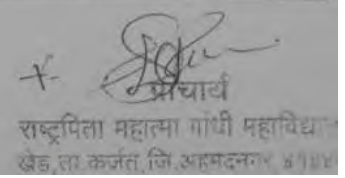 प्राचार्य
राष्ट्रपिता महात्मा गांधी
खेड, ता. कर्जत, जि. अहमदनगर